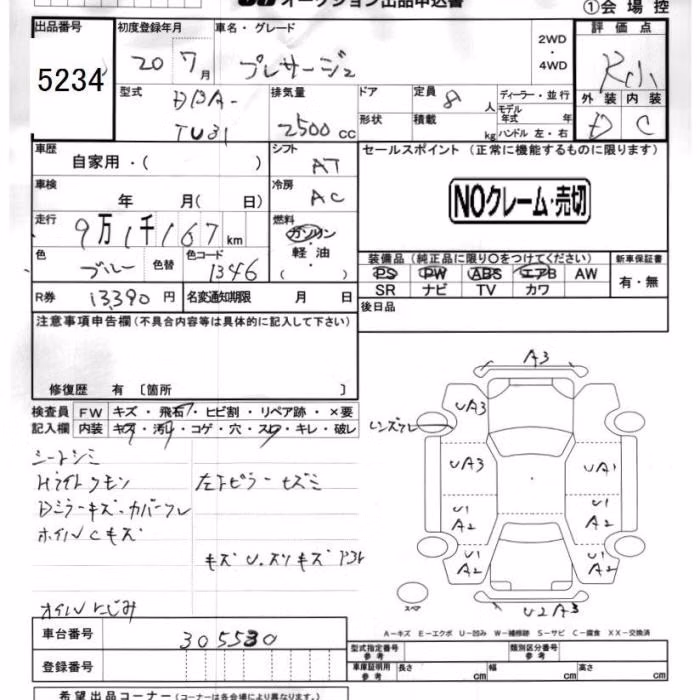 オークション出品申込書
①会場控
出品番号
5234
初度登録年月
20 7月
車名・グレード
プレサージュ
2WD
・
4WD
評価点
外装 内装
D C
型式
DBA-
TU31
排気量
2500 cc
ドア
形状
定員 8 人
積載 kg
ディーラー・並行
モデル
年式 年
ハンドル 左・右
車歴
自家用・( )
シフト
AT
セールスポイント (正常に機能するものに限ります)
NOクレーム・売切
車検
年 月( 日)
冷房
AC
走行
9万1千167km
燃料
ガソリン
軽油
( )
色
ブルー
色替
色コード
1346
装備品 (純正品に限り○をつけてください)
PS PW ABS エアB AW
SR ナビ TV カワ
新車保証書
有・無
R券 13,390 円
名変通知期限 月 日
後日品
注意事項申告欄(不具合内容等は具体的に記入して下さい)
修復歴 有 〔箇所 〕
検査員
記入欄
FW キズ・飛石・ヒビ割・リペア跡・×要
内装 キズ・汚レ・コゲ・穴・スレ・キレ・破レ
シートシミ
Hライトクモン
左下ピラーセズミ
Dミラーキズ・カバーワレ
ホイルCキズ
キズU.スリキズ
オイルにじみ
A3
UA3
レンズワレ
UA3
UA1
U1
A2
U1
A2
U1
A2
U1
A2
U2A3
スペア
A－キズ E－エクボ U－凹み W－補修跡 S－サビ C－腐食 XX－交換済
車台番号 305530
登録番号
型式指定番号
参考
類別区分番号
参考
車庫証明用
参考
長さ cm 幅 cm 高さ cm
希望出品コーナー(コーナーは各会場により異なります。)